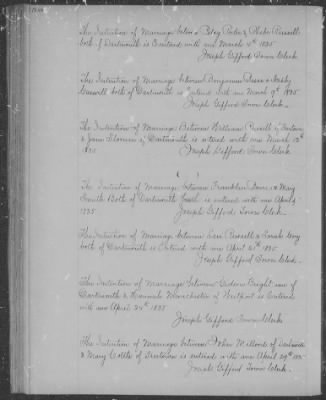 The Intention of Marriage Between Peleg & Phebe Russell
both of Dartmouth is Entered with me March 4th 1835
Joseph Gifford Town Clerk
The Intention of Marriage between Benjamin &
both of Dartmouth is Entered with me March 9th 1835
Joseph Gifford Town Clerk
The Intention of Marriage Between William Russell of
& Jane of Dartmouth is entered with me March 13th
1835 Joseph Gifford Town Clerk
The Intention of Marriage between Franklin & Mary
Smith Both of Dartmouth is entered with me April
1835 Joseph Gifford Town Clerk.
The Intention of Marriage between Russell & Sarah
both of Dartmouth is Entered with me April 21th 1835
Joseph Gifford Town Clerk.
The Intention of Marriage between Gideon of
Dartmouth & Hannah Manchester of Westport is Entered
with me April 24th 1835
Joseph Gifford Town Clerk
The Intention of Marriage between John of Dartmouth
& Mary of Dartmouth is entered with me April 29th 1835
Joseph Gifford Town Clerk